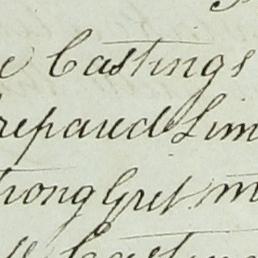 e Castings
repared Lim
rong Gret m
Castin